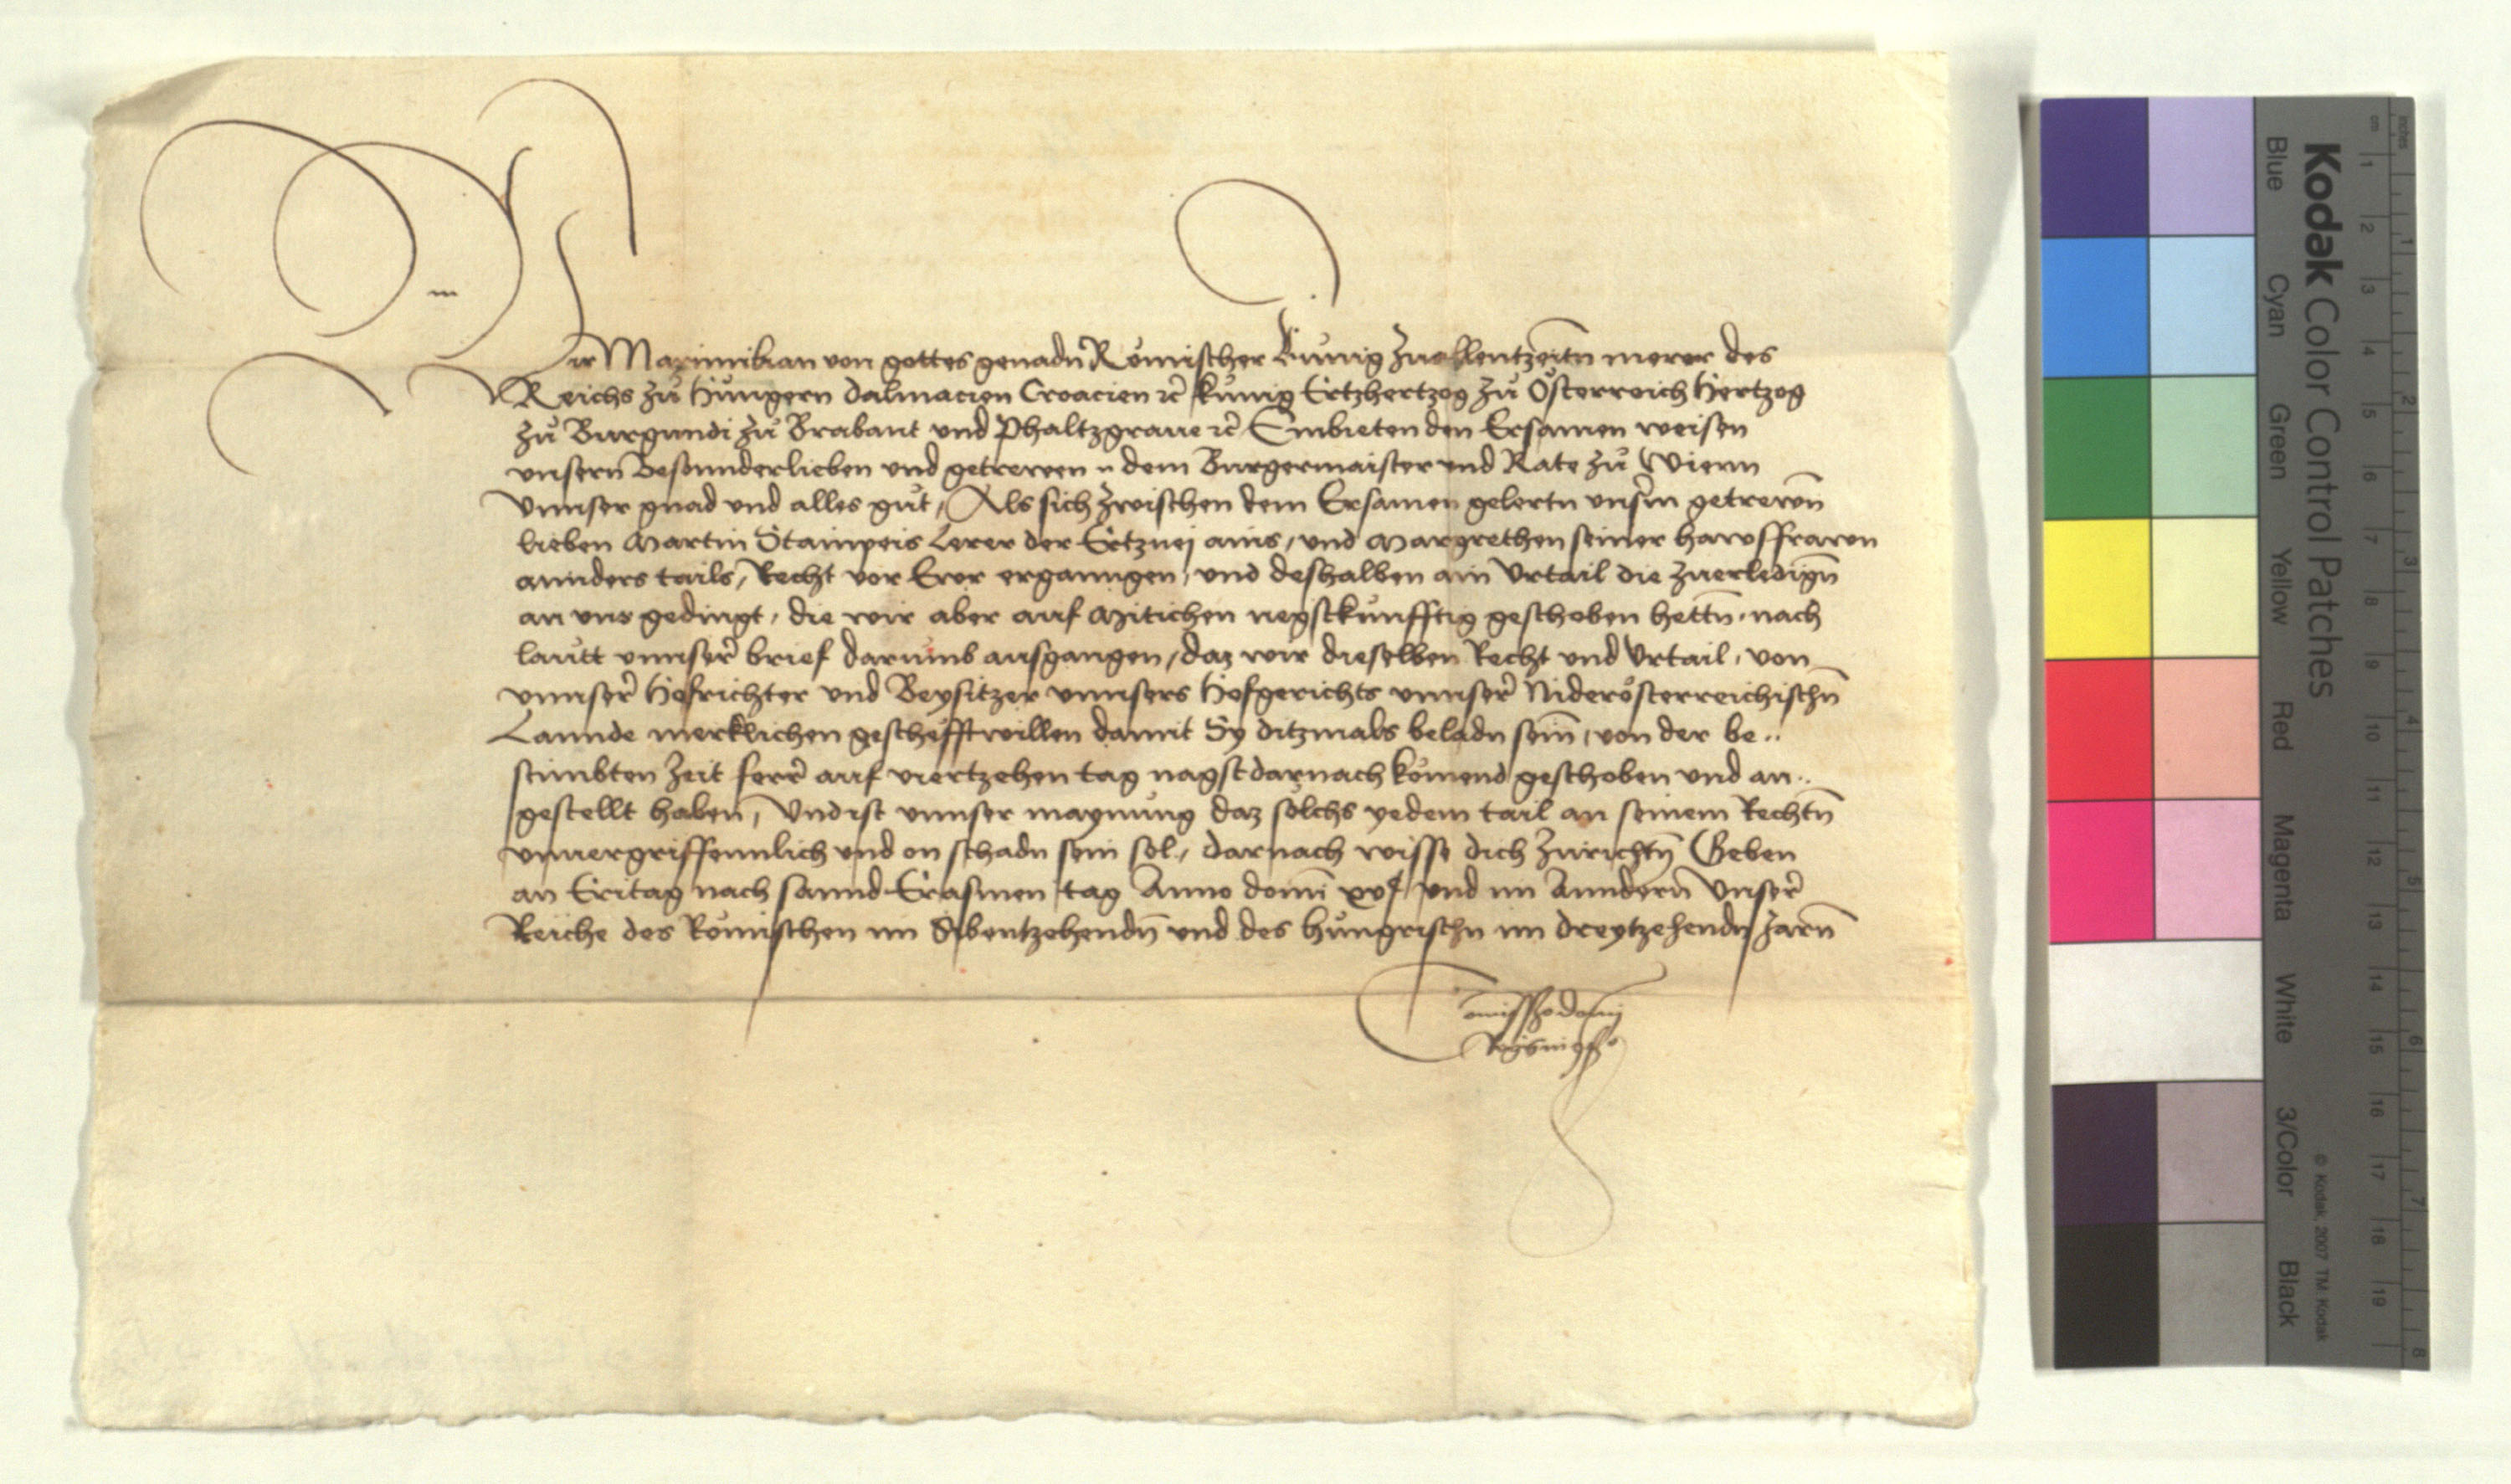 Wir Maximilian von gottes genadn̄ Römischer Kunig zuallentzeitn̄ merer des
Reichs zu Hungern Dalmacien Croacien ꝛc̄ kunig Ertzhertzog zu Österreich Hertzog
zu Burgundi zu Brabant und Phaltzgraue ꝛc̄ Embieten den Ersamen weisen
unsern̄ Besonnderlieben und getrewen n dem Burgermaister und Rate zu Wienn
Unnser gnad und alles gut, Als sich zwischen dem Ersamen gelertn unserm getrewn̄
lieben Martin Stainpeis Lerer der Ertznej ains, und Margrethen seiner hawsfrawn
annders tails, Recht vor Ewr erganngen, und deshalben ain Urtail die zuerledign̄
an uns gedingt, die wir aber auf Mitichen negstkunfftig geschoben hettn̄, nach
lautt unnser̄ brief darumb ausgangen, daz wir dieselben Recht und Urtail, von
unnser̄ Hofrichter und Beysitzer unnsers Hofgerichts unnser̄ Niderösterreichischn̄
Lannde merklichen geschefftwillen damit Sy ditzmals beladn sein̄, von der be..
stimbten zeit ferr̄ auf viertzehen tag nagst darnach komend geschoben und an..
gestellt haben̄, Und ist unnser maynung daz solchs yedem tail an seinem Rechtn̄
unuergriffennlich und on schadn sein sol, darnach wisse dich zurichtn̄ Geben
an Eritag nach sannd Erasmen tag Anno domī xv und im Anndern̄ Unser̄
Reiche des Römischen im Sibentzehendn̄ und des hungrischn im dreytzehendn Jarn̄
Comissio domī
Regis